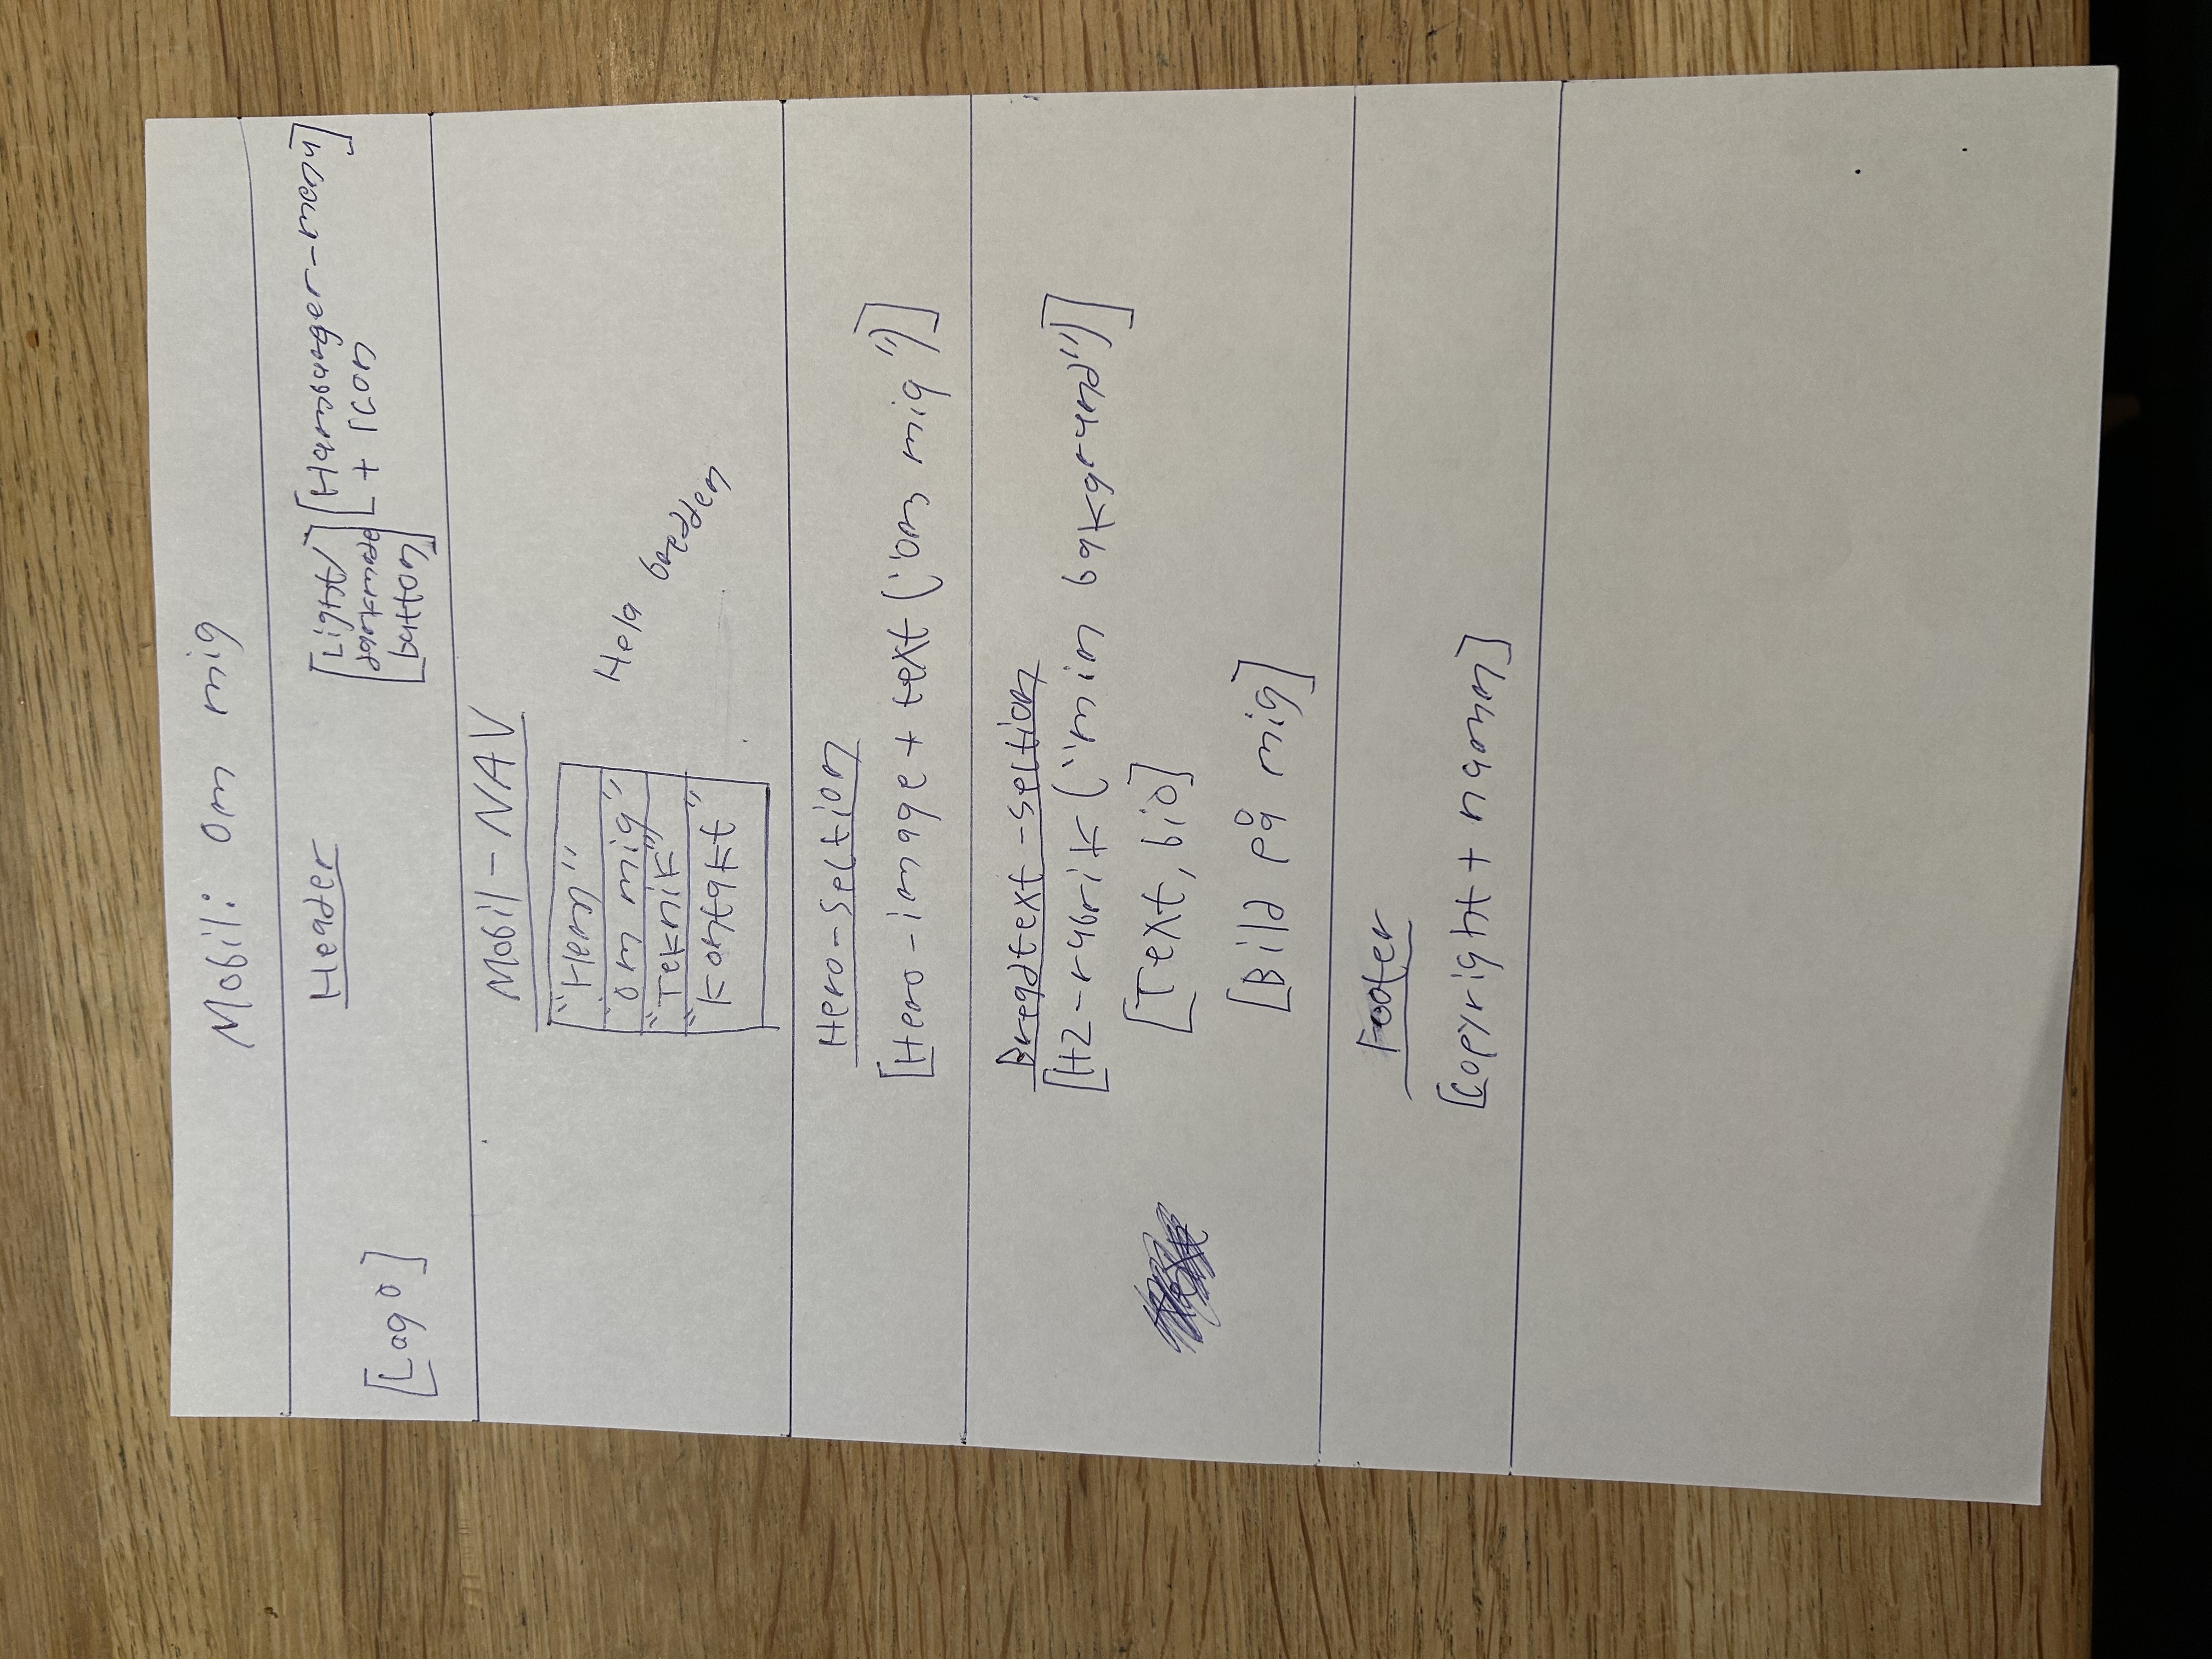 Mobil: om mig
Header
[Logo]
[Light/
darkmode
button]
[Hamburger-menu]
+ Icon
Mobil-NAV
"Hem"
"om mig"
"Teknik"
"Kontakt"
Hela bredden
Hero-section
[Hero-image + text ("om mig")]
Breadtext-section
[H2-rubrik ("min bakgrund")]
[Text, bio]
[Bild på mig]
Footer
[Copyright + namn]